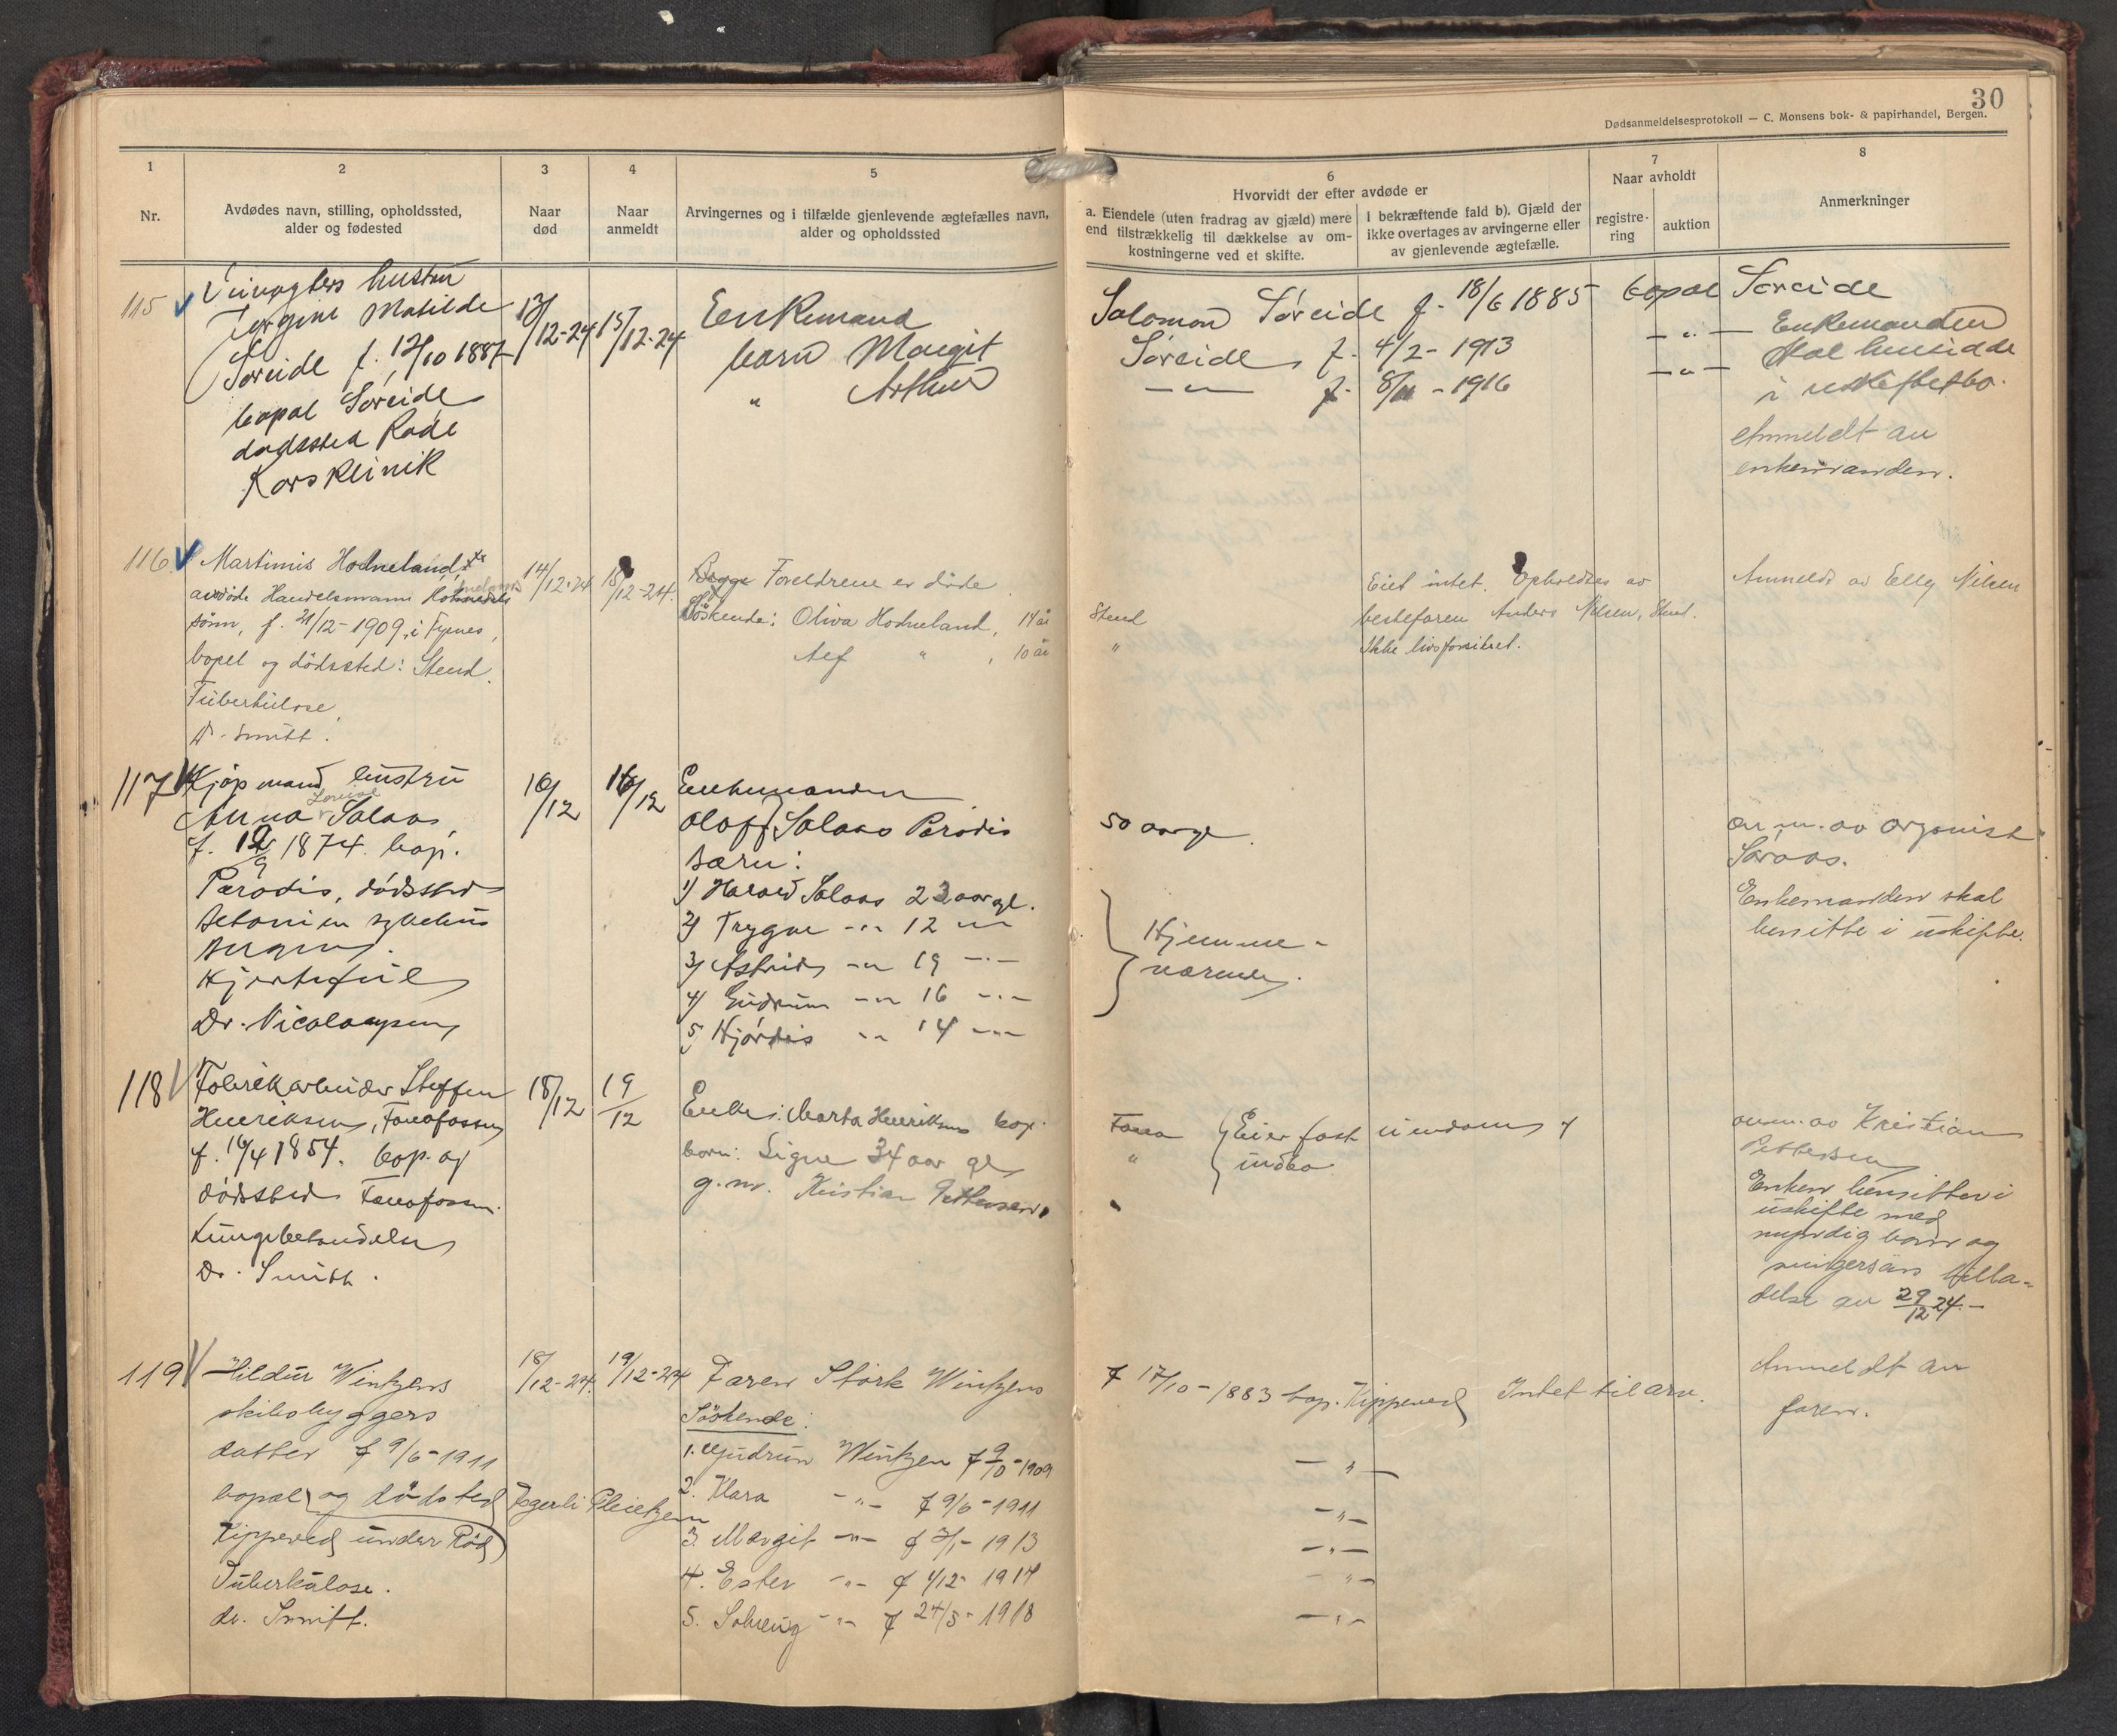 30
Dødsanmeldelsesprotokoll — C. Monsens bok- & papirhandel, Bergen.
1
2
3
4
5
6
7
8
Nr.
Avdødes navn, stilling, opholdssted,
alder og fødested
Naar
død
Naar
anmeldt
Arvingernes og i tilfælde gjenlevende ægtefælles navn,
alder og opholdssted
Hvorvidt der efter avdøde er
a. Eiendele (uten fradrag av gjæld) mere
end tilstrækkelig til dækkelse av om-
kostningerne ved et skifte.
I bekræftende fald b). Gjæld der
ikke overtages av arvingerne eller
av gjenlevende ægtefælle.
Naar avholdt
registre-
ring
auktion
Anmerkninger
115
hustru
Jørgine Matilde
Søreide f. 12/10 1887
bopæl Søreide
dødssted Røde
Kors klinik
13/12-24
15/12-24
Enkemand
Salomon Søreide f. 18/6 1885 bopæl Søreide
barn Margit
Søreide f. 4/2 - 1913 — " —
" Arthur
— " — f. 8/11 - 1916 — " —
Enkemanden
skal hensidde
i uskiftet bo.
Anmeldt av
enkemanden.
116
Martinus Hodneland,
avdøde Handelsmann
sønn, f. 21/12-1909, i Fyenes,
bopel og dødssted: Stend.
Tuberkulose,
Dr. Smitt.
14/12-24
15/12-24.
Begge Foreldrene er døde
Söskende: Oliva Hodneland, 14 år Stend
Alf " , 10 år "
Eiet intet. Opholdtes av
bestefaren Anders Nilsen, Stend.
Ikke livsforsikret.
Anmeldt av Elly Nilsen
117
Kjøpmand hustru
Anna Lovise Salaas,
f. 12/9 1874. bop.
Paradis, dødssted
Betanien sykehus
Bergen.
Hjertefeil
Dr. Nicolaysen
16/12
16/12
Enkemanden
Oloff Salaas Paradis 50 aar gl.
Barn:
1) Harald Salaas 23 aar gl.
2) Trygve — " — 12 — " —
3) Astrid — " — 19 — " —
4) Gudrun — " — 16 — " —
5) Hjørdis — " — 14 — " —
Hjemme-
værende.
anm. av organist
Søraas.
Enkemanden skal
hensitte i uskifte.
118
Fabrikarbeider Steffen
Henriksen, Fanafossen
f. 16/4 1854. bop. og
dødssted Fanafossen.
Lungebetændelse
Dr. Smitt.
18/12
19/12
Enke: Marta Henriksen bop. Fana
barn: Signe 34 aar gl. "
g. m. Kristian Pettersen. "
Eier fast eiendom &
indbo
anm. av Kristian
Pettersen
Enken hensitter i
uskifte med
myndig barn og
svigersøns tilla-
delse av 29/12 24.-
119
Hildur Wintzens
skibsbyggers
datter f 9/6-1911
bopæl og dødsted
Kippeved under Rød
Tuberkulose.
dr. Smitt.
18/12-24.
19/12-24
Faren Störk Wintzens
f 17/10-1883 bop. Kippeved Intet til arv.
Söskende:
1. Gudrun Wintzen f 9/10-1909 — " —
2. Klara — " — f 9/6-1911 — " —
3. Margit — " — f 3/1-1913 — " —
4. Ester — " — f 4/12-1914 — " —
5. Solveig — " — f 24/5-1918 — " —
Anmeldt av
faren.